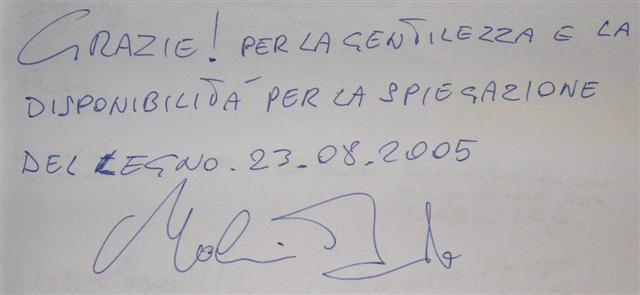 GRAZIE! PER LA GENTILEZZA E LA
DISPONIBILITÀ PER LA SPIEGAZIONE
DEL LEGNO. 23-08.2005